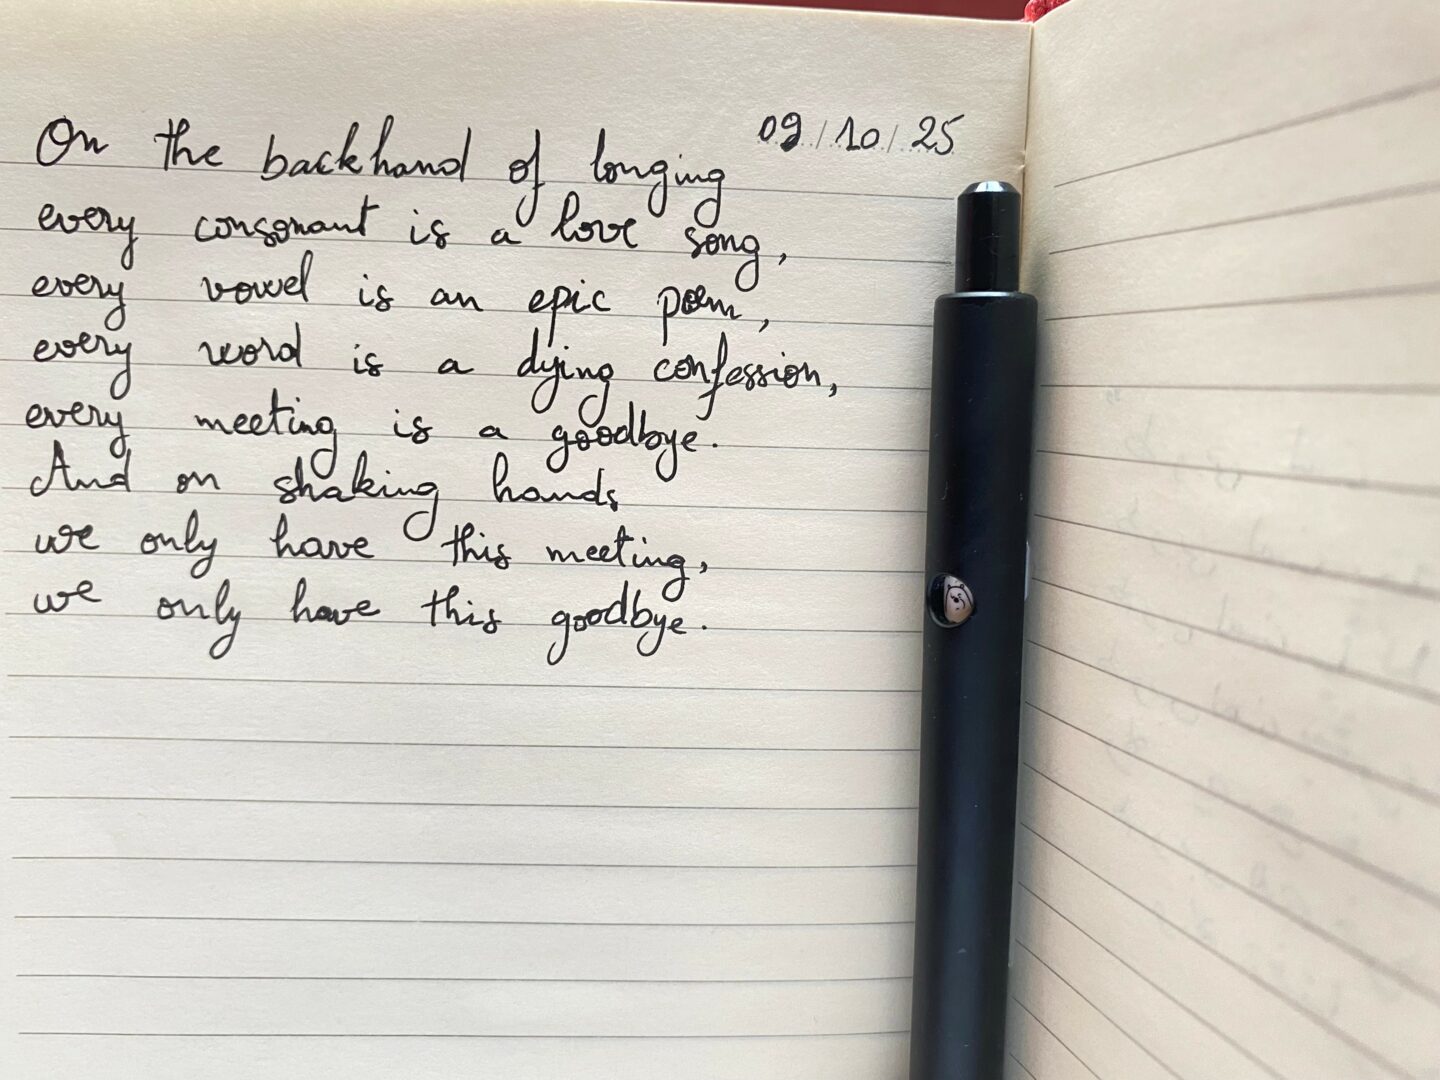 09/10/25
On the backhand of longing
every consonant is a love song,
every vowel is an epic poem,
every word is a dying confession,
every meeting is a goodbye.
And on shaking hands
we only have this meeting,
we only have this goodbye.